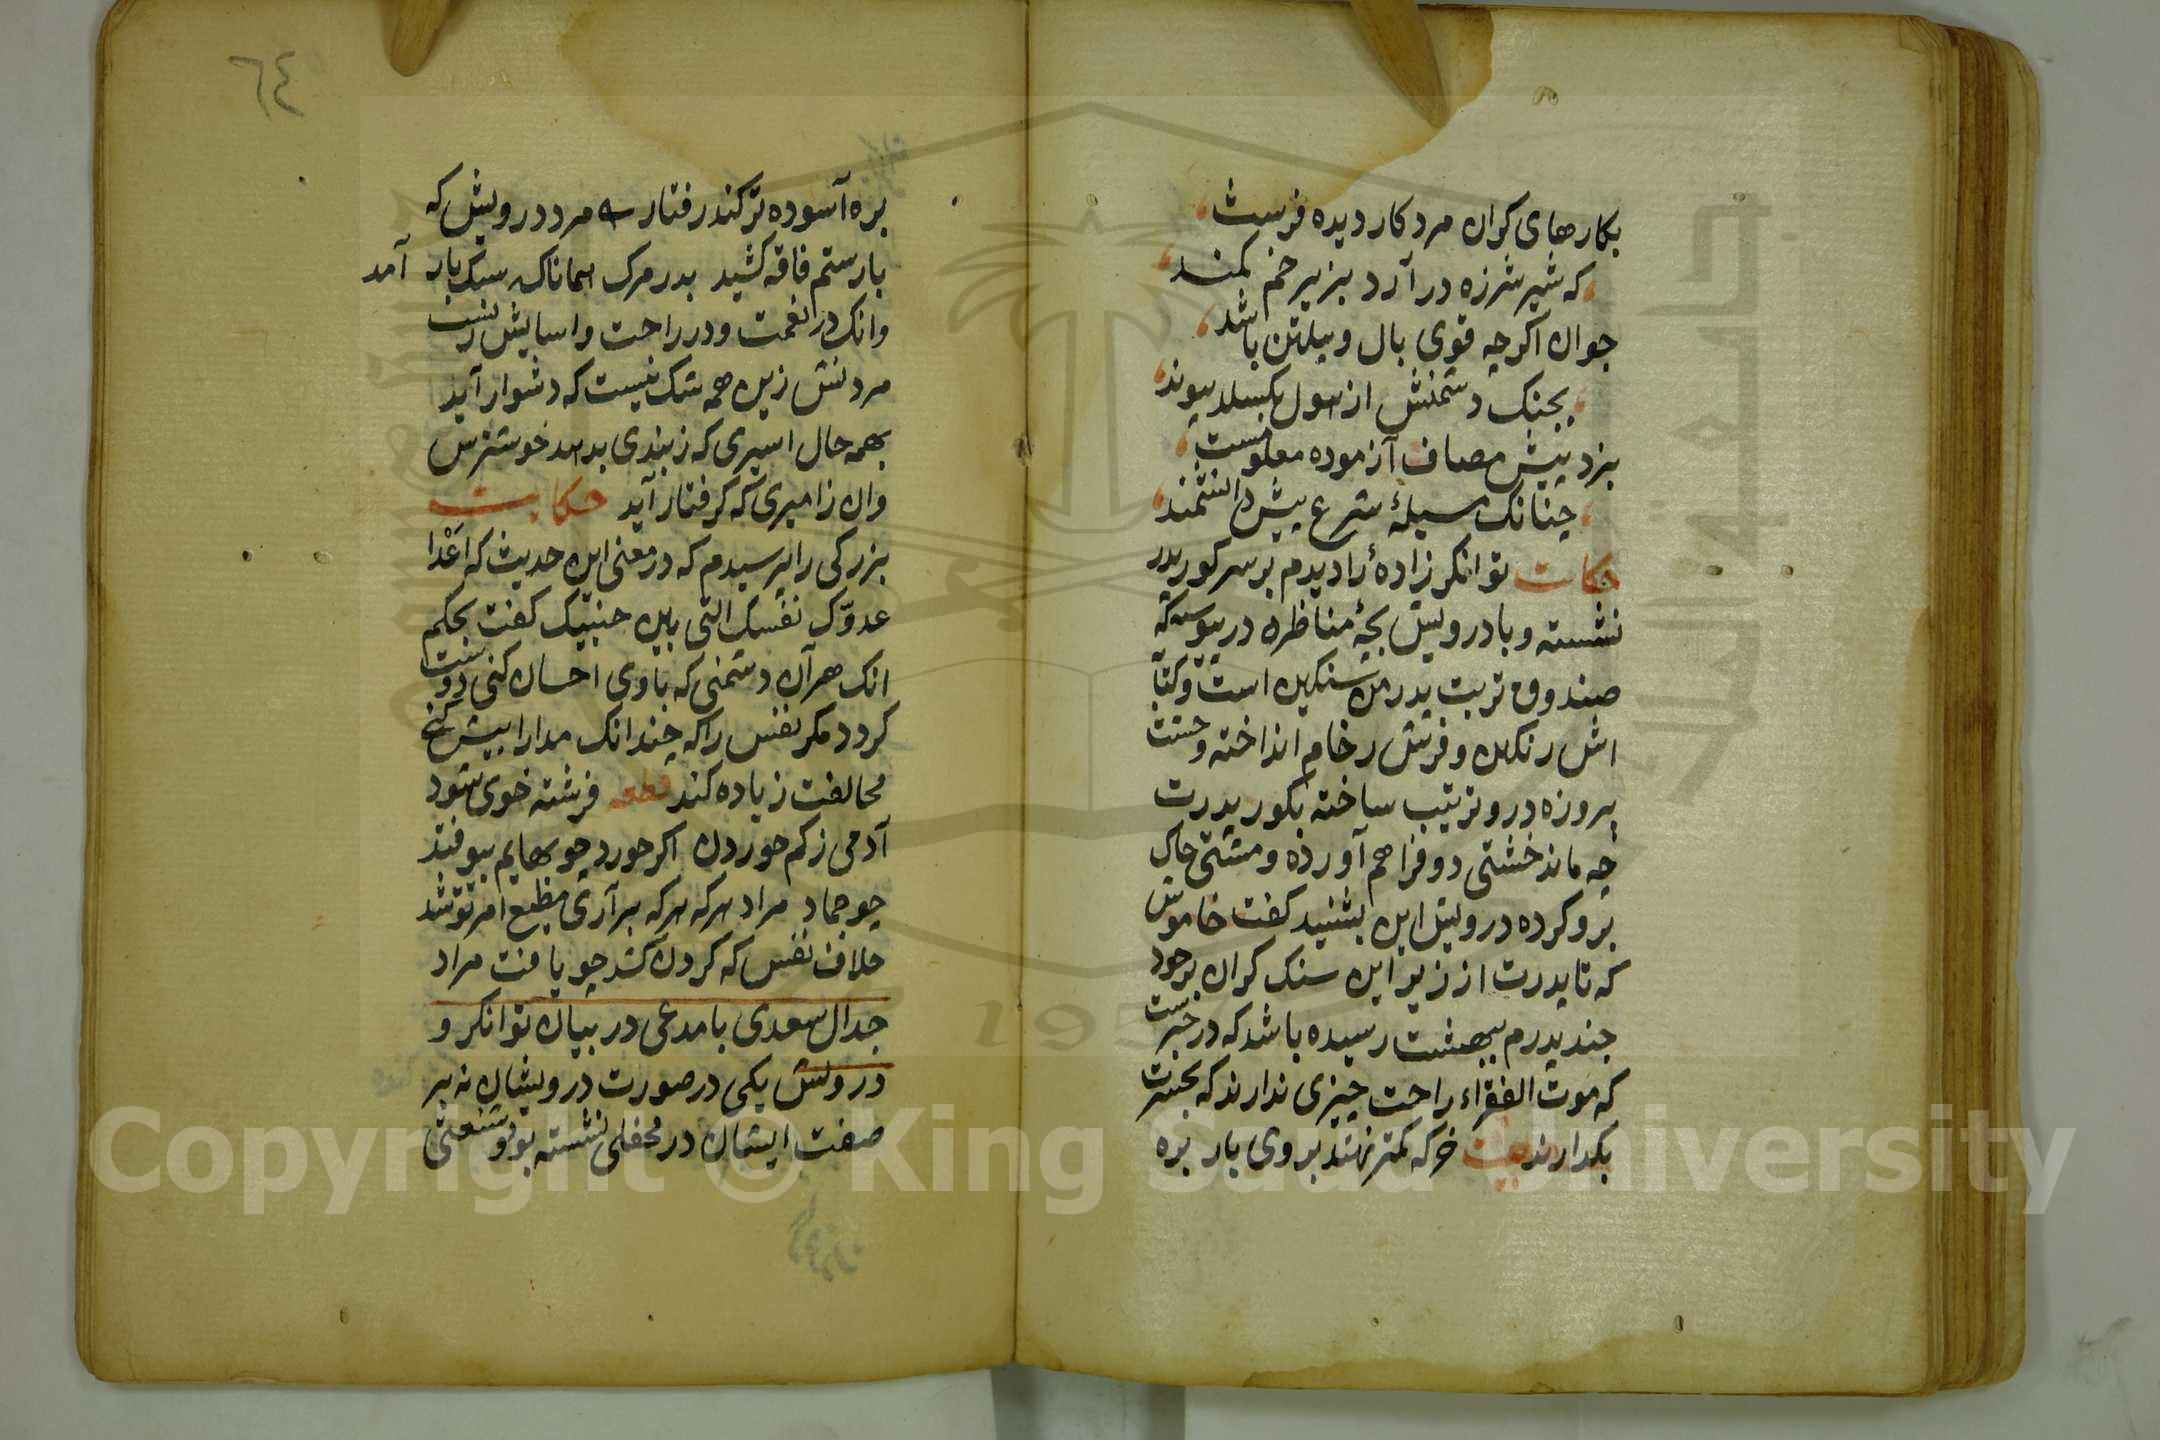 بکارهای کران مرد کار دیده فرست
که شیر شرزه در آرد بزیر خم کمند
جوان اکر چه قوی بال و پیلتن باشد
بجنک دشمنش از هول بکسلد پیوند
نبرد پیش مصاف آزموده معلومست
چنانک مسیلۀ شرع پیش دانشمند
حکایت توانکر زادۀ را دیدم بر سر کور پدر
نشسته و با درویش بچۀ مناظره در پیوسته که
صندوق تربت پدر من سنکین است و کتا
اش رنکین و فرش رخام انداخته و خشت
پیروزه درو ترتیب ساخته بکور پدرت
چه ماند خشتی دو فراهم آورده و مشتی خاک
برو کرده درویش این بشنید کفت خاموش
که تا پدرت از زیر این سنک کران بر خود
جند پدرم ببهشت رسیده باشد که در خبرست
که موت الفقراء راحت چیزی ندارند که بحسرت
بکذارند بیت خر که کمتر نهند بر وی بار بره
٦٤
بره آسوده تر کند رفتار مرد درویش که
بار ستم فاقه کشید بدر مرک همانا که سبک بار آمد
وانک در نعمت و در راحت و اسایش زیست
مردنش زین همه شک نیست که دشوار آید
بهمه حال اسیری که ز بندی برهد خوشترش
دان ز امیری که کرفتار آید حکایت
بزرکی را پرسیدم که در معنی این حدیث که اَعْدا
عدوّک نفسک التی بین جنبیک کفت بحکم
انک هر آن دشمنی که باوی احسان کنی دوست
کردد مکر نفس را که چندانک مدارا بیش کنی
مخالفت زیاده کند قطعه فرشته خوی شود
آدمی ز کم خوردن اکر خورد چو بهایم بیوفتد
چو جماد مراد هر که هر که برآری مطیع امر تو شد
خلاف نفس که کردن کشد چو یافت مراد
جدال سعدی با مدعی در بیان توانکر و
درویش یکی در صورت درویشان نه بر
صفت ایشان در محفلی نشسته بود و شنعتی